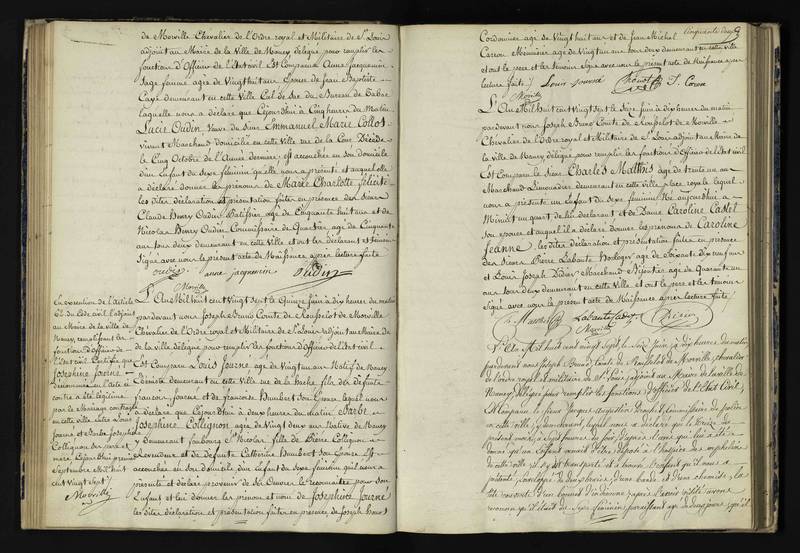 de Morville Chevalier de l'Ordre royal et Militaire de St Louis
adjoint au Maire de la Ville de Nancy délégué pour remplir les
fonctions d'Officier de l'état civil Est Comparue Anne Jacquemin
Sage femme agée de Vingt huit ans Epouse de Jean Baptiste
demeurant en cette Ville Cul de Sac du Bureau de Tabac
laquelle nous a déclaré que Cejourd'hui à Cinq heures du Matin
Lucie Oudin Veuve du Sieur Emmanuel Marie Collos
vivant Marchand domicilié en cette Ville rue de la Cour Décédé
le Cinq Octobre de l'Année dernière, est accouchée en son domicile
d'un Enfant du Sexe féminin qu'elle nous a présenté et auquel elle
a déclaré donner les prénoms de Marie Charlotte félicité
les dites déclaration et présentation faites en présence des Sieurs
Claude Henry Oudin agé de Cinquante huit ans et de
Nicolas Henry Oudin Commissaire de Quartier agé de Cinquante
ans tous deux demeurant en cette Ville et ont les déclarant et témoins
Signé avec nous le présent acte de Naissance après lecture faite
oudin anne jacquemin Oudin
Morville
L'An Mil huit cent Vingt Sept le Quinze Juin à dix heures du matin
pardevant nous Joseph Bruno Comte de Rousselot de Morville
Chevalier de l'Ordre royal et Militaire de St Louis adjoint au Maire de
la Ville de Nancy délégué pour remplir les fonctions d'Officier de l'état civil
Est Comparu Louis Journé agé de Vingt un ans Natif de Nancy
Ebéniste demeurant en cette Ville rue de la hache, fils des défunts
françois Journé et de françoise Humbert son Epouse lequel nous
a déclaré que Cejourd'hui à deux heures du matin Barbe
Josephine Collignon agée de Vingt deux ans Native de Nancy
y demeurant faubourg St Nicolas fille de Pierre Collignon
et de défunte Catherine Humbert son Epouse Est
accouchée en son domicile d'un Enfant du Sexe féminin qu'il nous a
présenté et déclaré provenir de ses Oeuvres le reconnaître pour son
Enfant et lui donner les prénom et nom de Josephine Journé
les dites déclaration et présentation faites en présence de Joseph
En exécution de l'Article
62 du Code civil l'adjoint
au Maire de la ville de
Nancy remplissant les
fonctions d'Officier de
l'état civil Certifie que
Josephine Journé
dénommée en l'acte ci
contre a été légitimée
par le Mariage contracté
en cette ville entre Louis
Journé et Barbe Josephine
Collignon ses père et
mère Cejourd'hui premier
Septembre Mil huit
cent vingt Sept
Morville
Cinquante deux
Cordonnier agé de Vingt huit ans et de Jean Michel
Menuisier agé de Vingt un ans tous deux demeurant en cette ville
et ont le père et les témoins Signé avec nous le présent acte de Naissance après
lecture faite Louis journé
Morville
L'An Mil huit cent Vingt Sept le Seize Juin à dix heures du matin
pardevant nous Joseph Bruno Comte de Rousselot de Morville
Chevalier de l'Ordre royal et Militaire de St Louis adjoint au Maire de
la Ville de Nancy délégué pour remplir les fonctions d'Officier de l'état civil
Est Comparu le Sieur Charles Matthis agé de trente un ans
Marchand Limonadier demeurant en cette Ville place royale lequel
nous a présenté un Enfant du Sexe féminin Né aujourd'hui à
Minuit un quart de lui déclarant et de Dame Caroline Castel
son épouse et auquel il a déclaré donner les prénoms de Caroline
Jeanne, les dites déclaration et présentation faites en présence
des Sieurs Pierre Labaute Horloger agé de Soixante dix ans
et Louis Joseph Didier Marchand agé de Quarante un
ans tous deux demeurant en cette Ville, et ont le père et les témoins
Signé avec nous le présent acte de Naissance après lecture faite
Morville
L'An Mil huit cent vingt Sept le Seize Juin à dix heures du matin
pardevant nous Joseph Bruno Comte de Rousselot de Morville chevalier
de l'ordre royal et militaire de St Louis adjoint au Maire de la ville de
Nancy, délégué pour remplir les fonctions d'officier de l'Etat Civil,
Comparu le Sieur Jacques Augustin Commissaire de police
en cette ville y demeurant, lequel nous a déclaré que le treize du
présent mois à Sept heures du soir, d'après l'avis qui lui a été
donné qu'un Enfant venait d'être déposé à l'hospice des orphelins
de cette ville il s'y est transporté et a trouvé l'enfant qu'il nous a
présenté, enveloppé de d'une bande et d'une chemise, la
tête couverte d'un bonnet d'indienne; après l'avoir visité avons
reconnu qu'il était du Sexe féminin paraissant agé de deux jours, qu'il